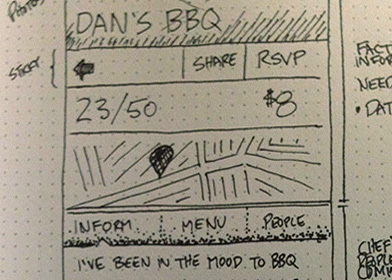 PHOTOS
DAN'S BBQ
STICKY
SHARE
RSVP
23/50
$8
INFORM
MENU
PEOPLE
I'VE BEEN IN THE MOOD TO BBQ
FACT
INFOR
NEED
• DAT
CHEF'S
PEOPL
COM